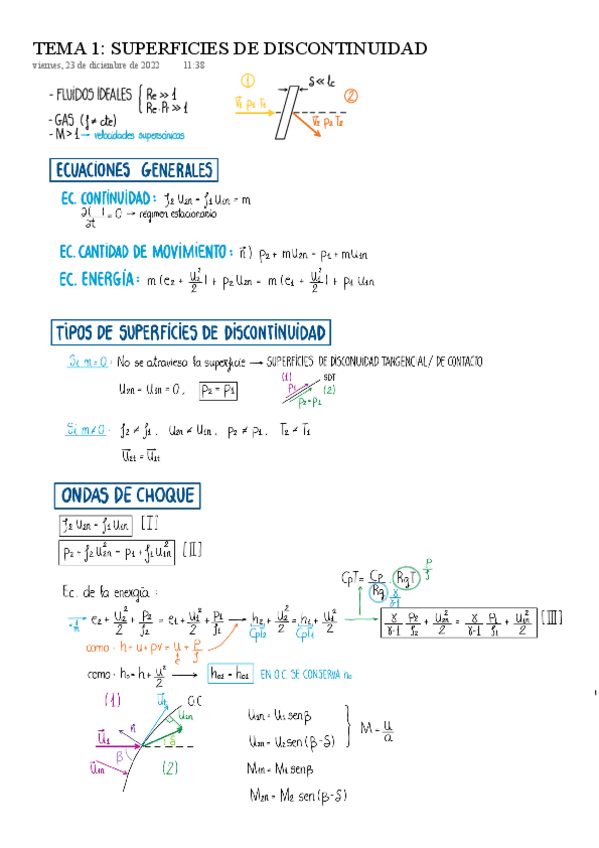 TEMA 1: SUPERFICIES DE DISCONTINUIDAD
viernes, 23 de diciembre de 2022 11:38
- FLUÍDOS IDEALES { Re >> 1
Re·Pr >> 1
- GAS (ρ ≠ cte)
- M > 1 → velocidades supersónicas
① δ << lc
v⃗1 p1 T1 ②
v⃗2 p2 T2
ECUACIONES GENERALES
EC. CONTINUIDAD: ρ2 u2n = ρ1 u1n = m
∂( )/∂t = 0 → régimen estacionario
EC. CANTIDAD DE MOVIMIENTO: n⃗) p2 + mu2n = p1 + mu1n
EC. ENERGÍA: m (e2 + u2²/2) + p2 u2n = m (e1 + u1²/2) + p1 u1n
TIPOS DE SUPERFICIES DE DISCONTINUIDAD
Si m=0: No se atraviesa la superficie → SUPERFICIES DE DISCONUIDAD TANGENCIAL / DE CONTACTO
u2n = u1n = 0, p2 = p1
(1) SDT
p1 (2)
p2=p1
Si m≠0: ρ2 ≠ ρ1, u2n ≠ u1n, p2 ≠ p1, T2 ≠ T1
u⃗2t = u⃗1t
ONDAS DE CHOQUE
ρ2 u2n = ρ1 u1n [I]
p2 + ρ2 u2n² = p1 + ρ1 u1n² [II]
Ec. de la energía:
CpT = Cp/Rg · RgT p/ρ
γ/γ-1
1/m e2 + u2²/2 + p2/ρ2 = e1 + u1²/2 + p1/ρ1 → h2 + u2²/2 = h1 + u1²/2
CpT2 CpT1
γ/γ-1 p2/ρ2 + u2n²/2 = γ/γ-1 p1/ρ1 + u1n²/2 [III]
como: h = u + pv = u + p/ρ
e
como: h0 = h + u²/2 → h02 = h01 EN O.C. SE CONSERVA h0
(1) u⃗t O.C.
n⃗ u2n
u⃗1 δ
β
u⃗1n (2)
u1n = u1 senβ
u2n = u2 sen (β-δ) } M = u/a
M1n = M1 senβ
M2n = M2 sen (β-δ)